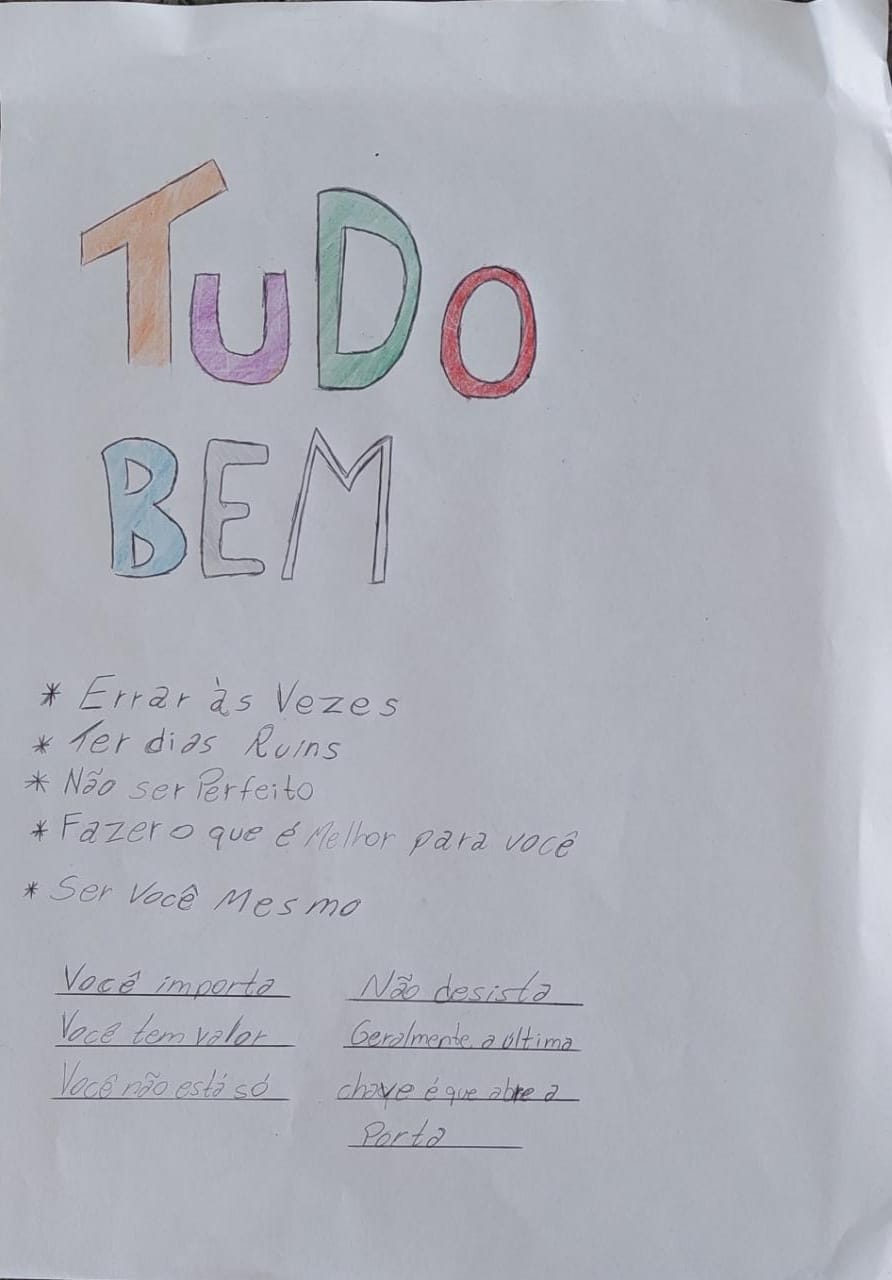 TUDO
BEM
* Errar às Vezes
* Ter dias Ruins
* Não ser Perfeito
* Fazer o que é Melhor para você
* Ser Você Mesmo
Você importa
Você tem valor
Você não está só
Não desista
Geralmente a última
chave é que abre a
Porta